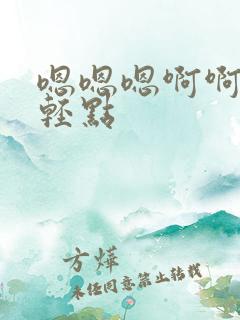 嗯嗯嗯啊啊
輕點
方燁
未经同意禁止转载